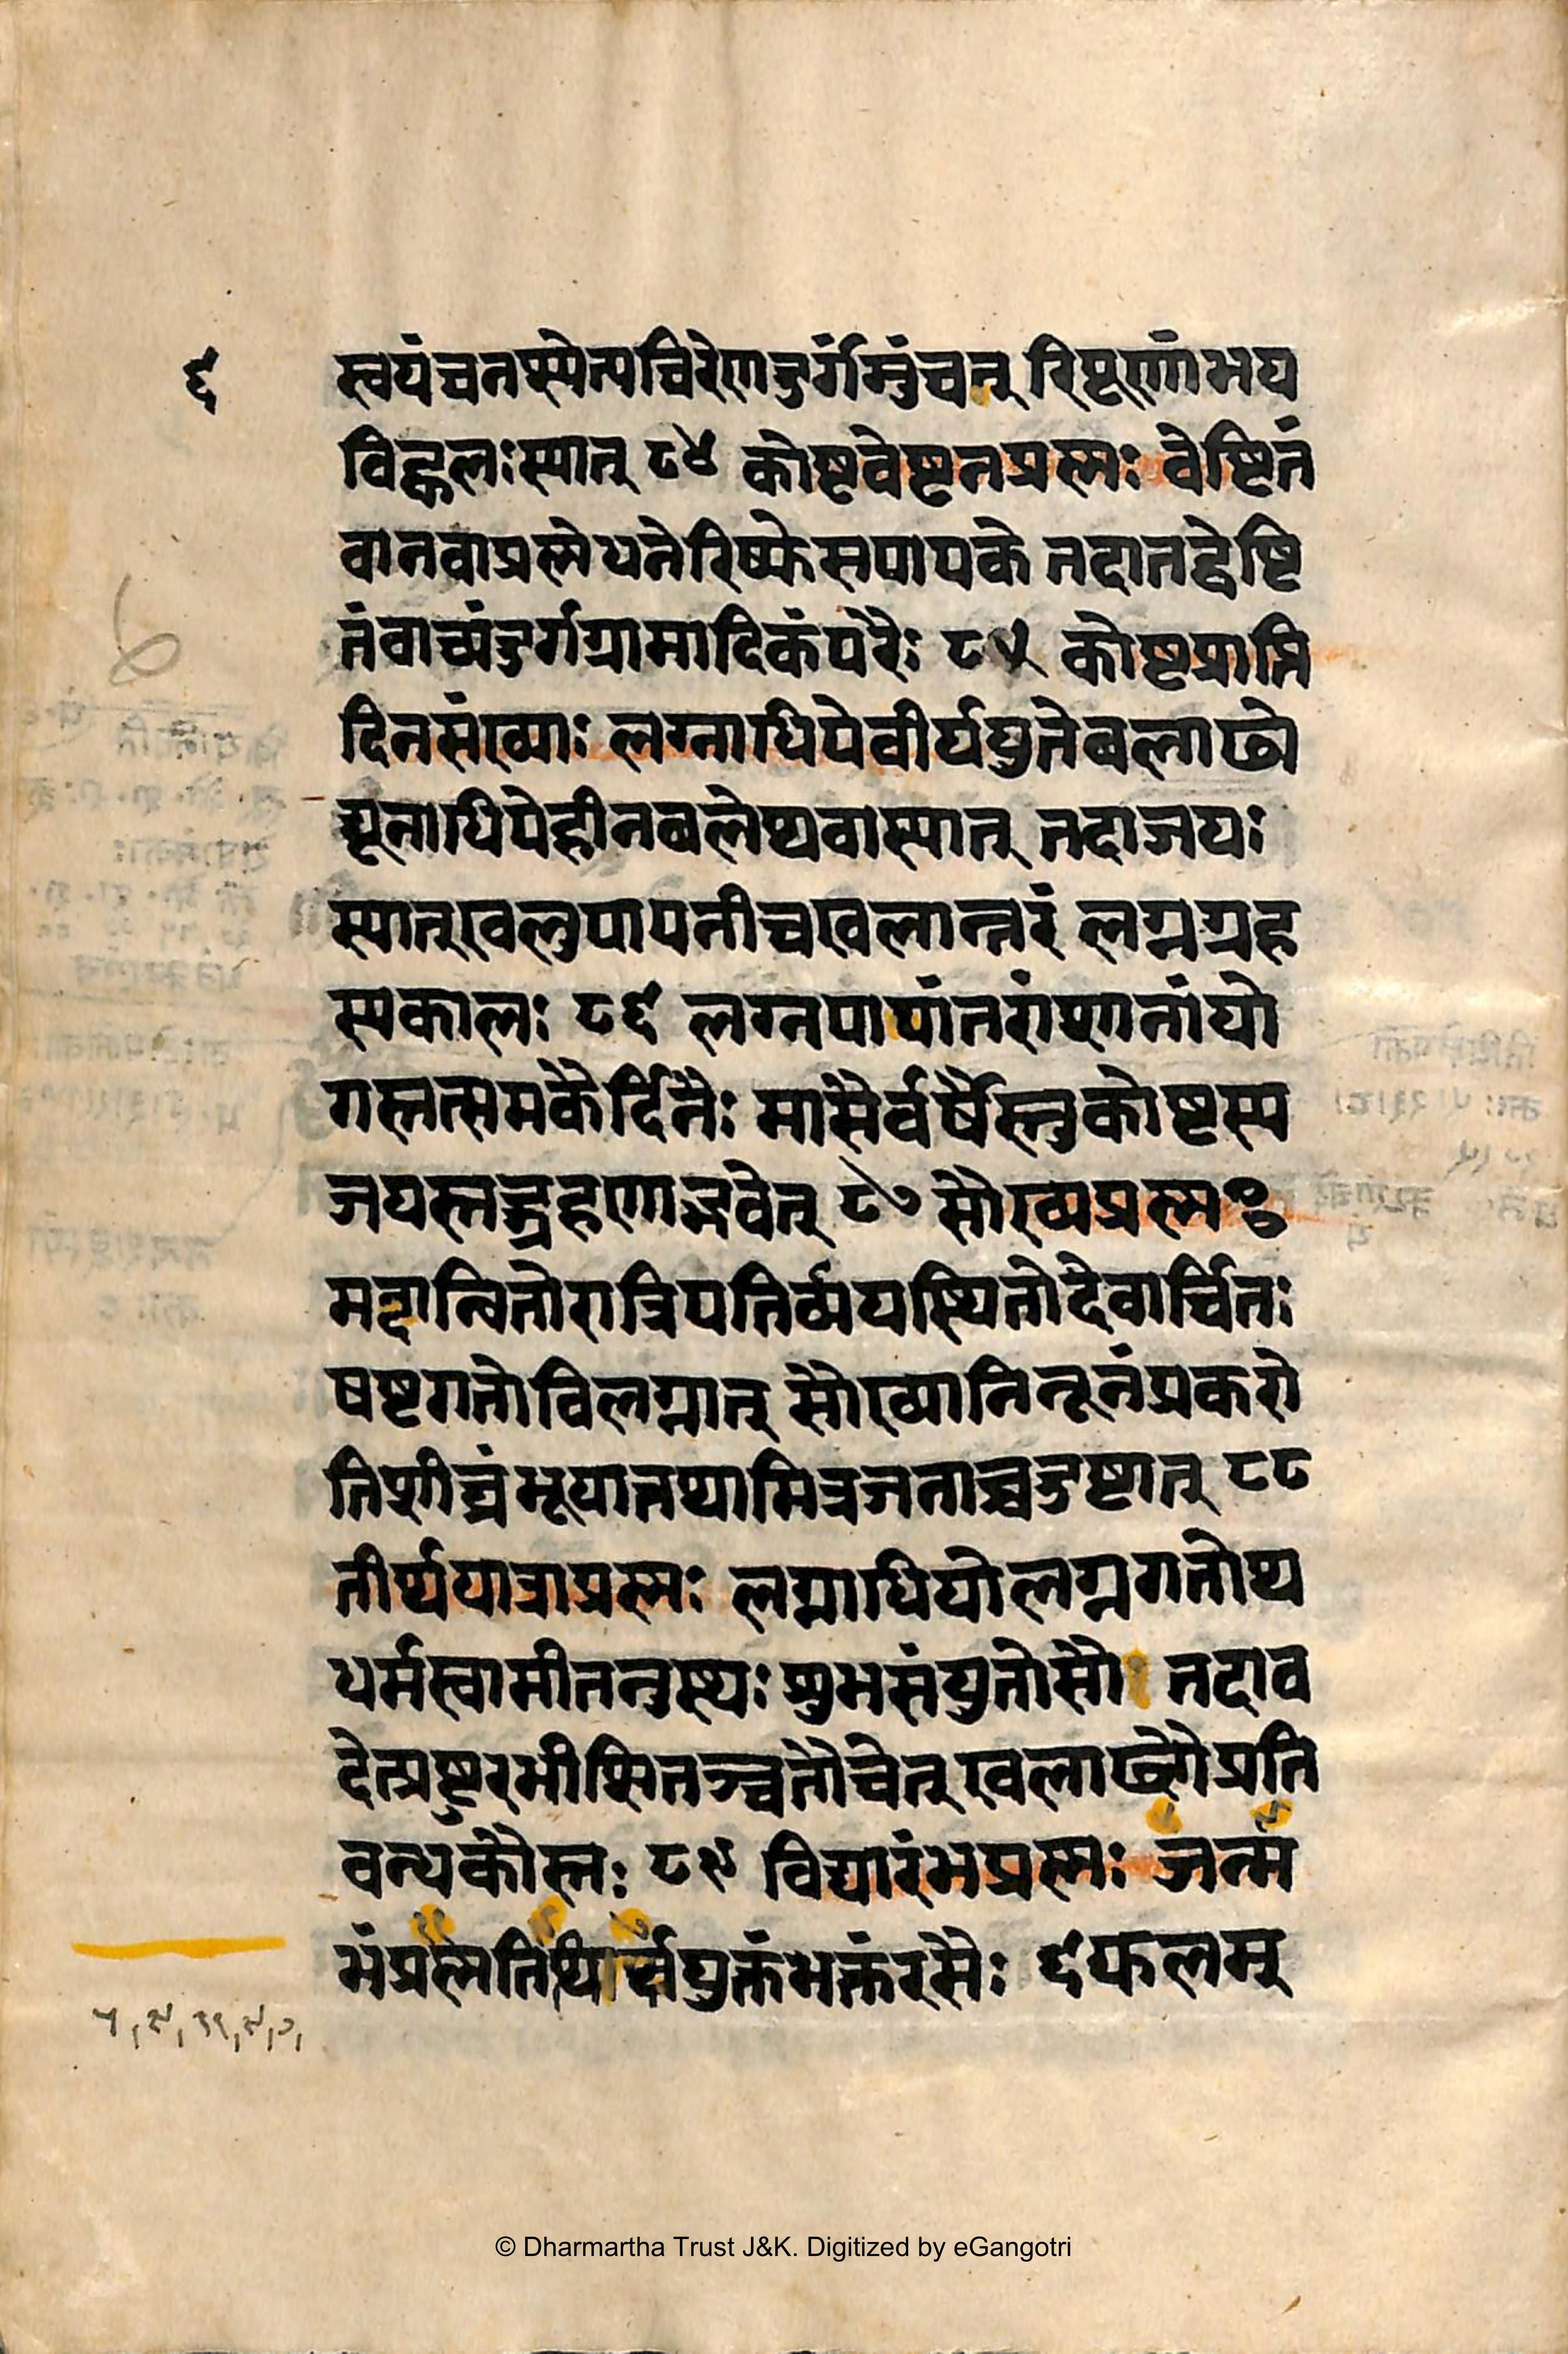 ६
स्वयंचनश्येत्यचिरेणदुर्गंमुंचन् रिपूणांभय
विह्वलःस्यात् ८४ कोष्टवेष्टनप्रश्नः वेष्टितं
वानवाप्रश्नेधनेरिष्फेसपापके तदातद्वेष्टि
तंवाच्यंदुर्गग्रामादिकंपरैः ८५ कोष्टप्राप्ति
दिनसंख्याः लग्नाधिपेवीर्ययुतेबलाढ्यो
द्यूनाधिपेहीनबलेथवास्यात् तदाजयः
स्यात्खलुपापनीचखलान्तरं लग्नग्रह
स्यकालः ८६ लग्नपापांतरांशानांयो
गस्तत्समकैर्दिनैः मासैर्वर्षैस्तुकोष्टस्य
जयस्तद्ग्रहणाद्भवेत् ८७ सौख्यप्रश्नः
मन्दान्वितोरात्रिपतिर्व्ययस्थितोदेवार्चितः
षष्टगतोविलग्नात् सौख्यानिनूनंप्रकरो
तिशीघ्रंभूपात्तथामित्रजनाच्चदुष्टात् ८८
तीर्थयात्राप्रश्नः लग्नाधिपोलग्नगतोथ
धर्मस्वामीतनुस्थः शुभसंयुतोसौ तदाव
देत्प्रष्टुरभीप्सितञ्चतौचेत् खलाढ्यौप्रति
बन्धकौस्तः ८९ विद्यारंभप्रश्नः जन्म
भंप्रश्नतिथिर्युक्तंभक्तंरसैः ६फलम्
© Dharmartha Trust J&K. Digitized by eGangotri